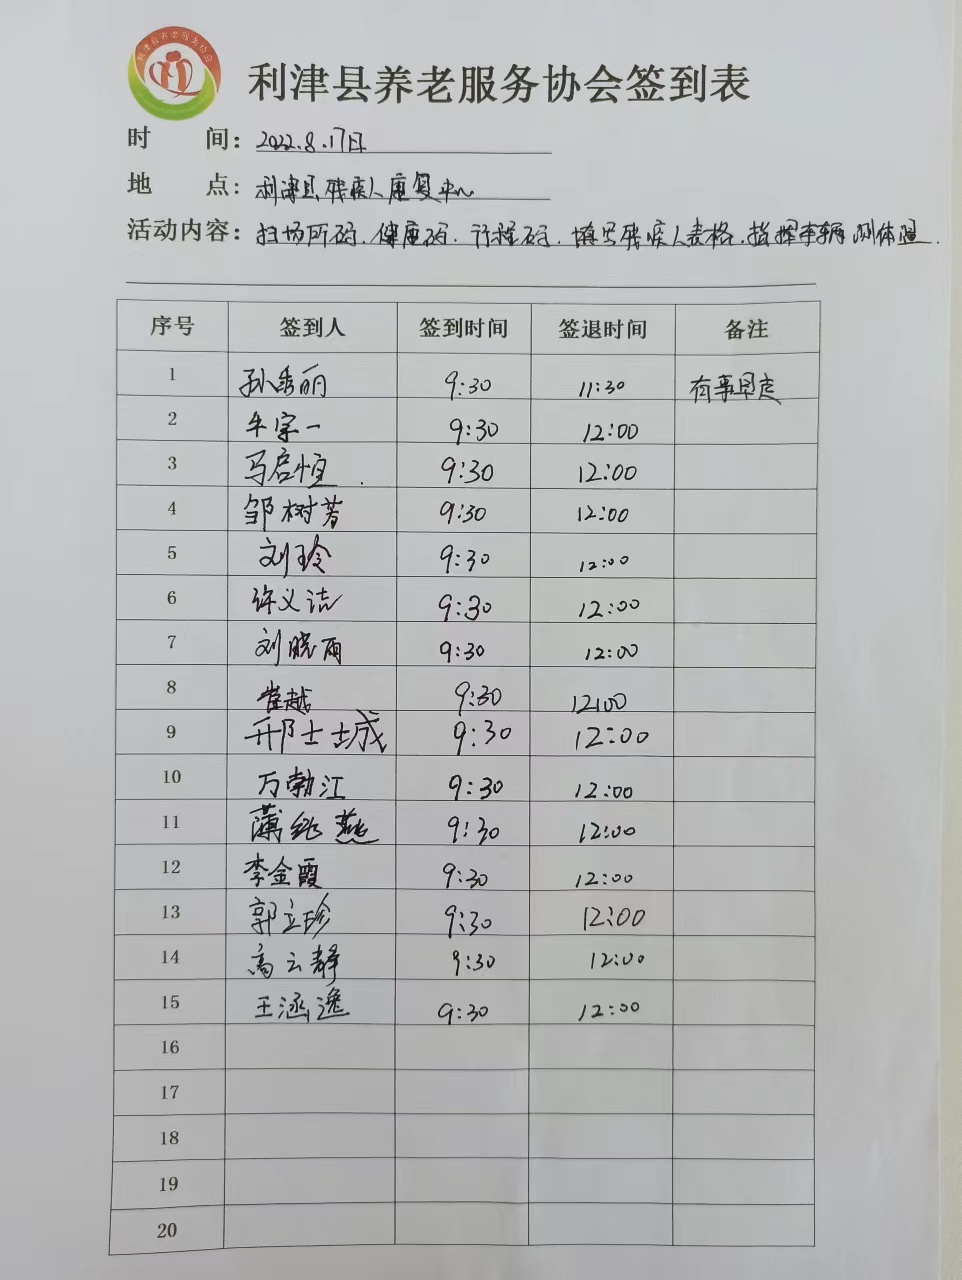 利津县养老服务协会
利津县养老服务协会签到表
时 间：2022.8.17日
地 点：利津县残疾人康复中心
活动内容：扫场所码.健康码.行程码.填写残疾人表格.指挥车辆测体温.
序号 签到人 签到时间 签退时间 备注
1 孙秀丽 9:30 11:30 有事早走
2 牛宗一 9:30 12:00
3 马启恒 9:30 12:00
4 邹树芳 9:30 12:00
5 刘玲 9:30 12:00
6 许义洁 9:30 12:00
7 刘晓雨 9:30 12:00
8 崔越 9:30 12:00
9 邢士城 9:30 12:00
10 万勃江 9:30 12:00
11 薄纯燕 9:30 12:00
12 李金霞 9:30 12:00
13 郭立珍 9:30 12:00
14 高云静 9:30 12:00
15 王涵逸 9:30 12:00
16
17
18
19
20